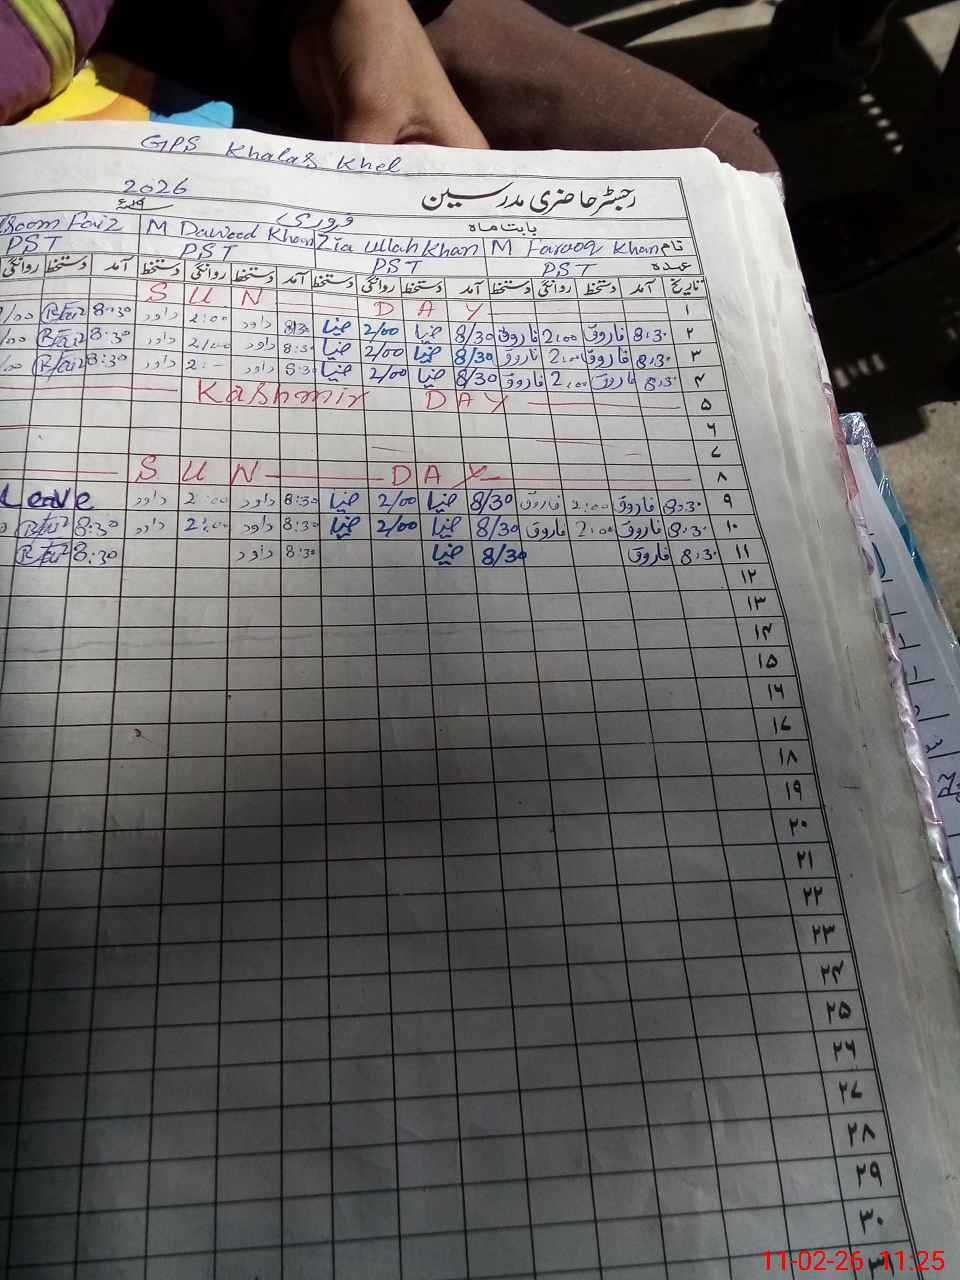 GPS Khalas Khel
رجسٹر حاضری مدرسین
2026
بابت ماہ فروری
نام M Farooq Khan Zia ullah Khan M Dawood Khan Faiz
عہدہ PST PST PST PST
تاریخ آمد دستخط روانگی دستخط آمد دستخط روانگی دستخط آمد دستخط روانگی دستخط آمد دستخط روانگی
۱ SUN DAY
۲ 8:30 فاروق 2:00 فاروق 8/30 ضیا 2/00 ضیا 8/30 داود 2:00 داود 8:30
۳ 8:30 فاروق 2:00 فاروق 8/30 ضیا 2/00 ضیا 8:30 داود 2:00 داود 8:30
۴ 8:30 فاروق 2:00 فاروق 8/30 ضیا 2/00 ضیا 8:30 داود 2:- داود 8:30
۵ Kashmir DAY
۶
۷
۸ SUN DAY
۹ 8:30 فاروق 2:00 فاروق 8/30 ضیا 2/00 ضیا 8:30 داود 2:00 داود Leave
۱۰ 8:30 فاروق 2:00 فاروق 8/30 ضیا 2/00 ضیا 8:30 داود 2:00 داود 8:30
۱۱ 8:30 فاروق 8/30 ضیا 8:30 داود 8:30
۱۲
۱۳
۱۴
۱۵
۱۶
۱۷
۱۸
۱۹
۲۰
۲۱
۲۲
۲۳
۲۴
۲۵
۲۶
۲۷
۲۸
۲۹
۳۰
۳۱
11-02-26 11:25